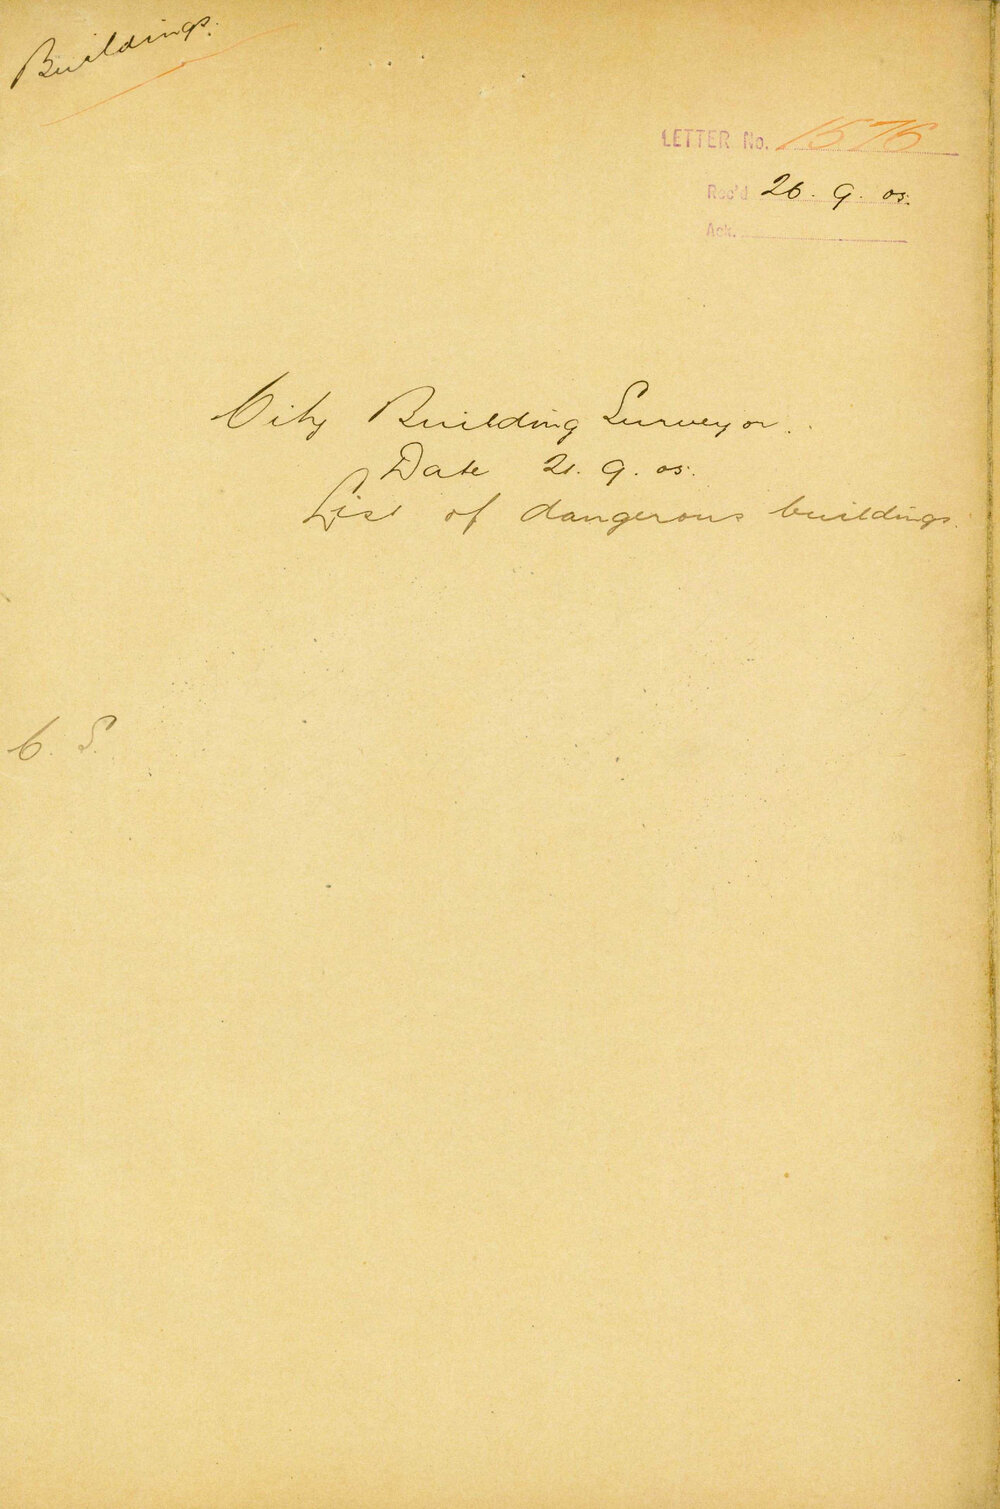 Buildings.
LETTER No. 1576
Rec'd 26. 9. 05.
Ack.
City Building Surveyor.
Date 21. 9. 05.
List of dangerous buildings.
C. S.